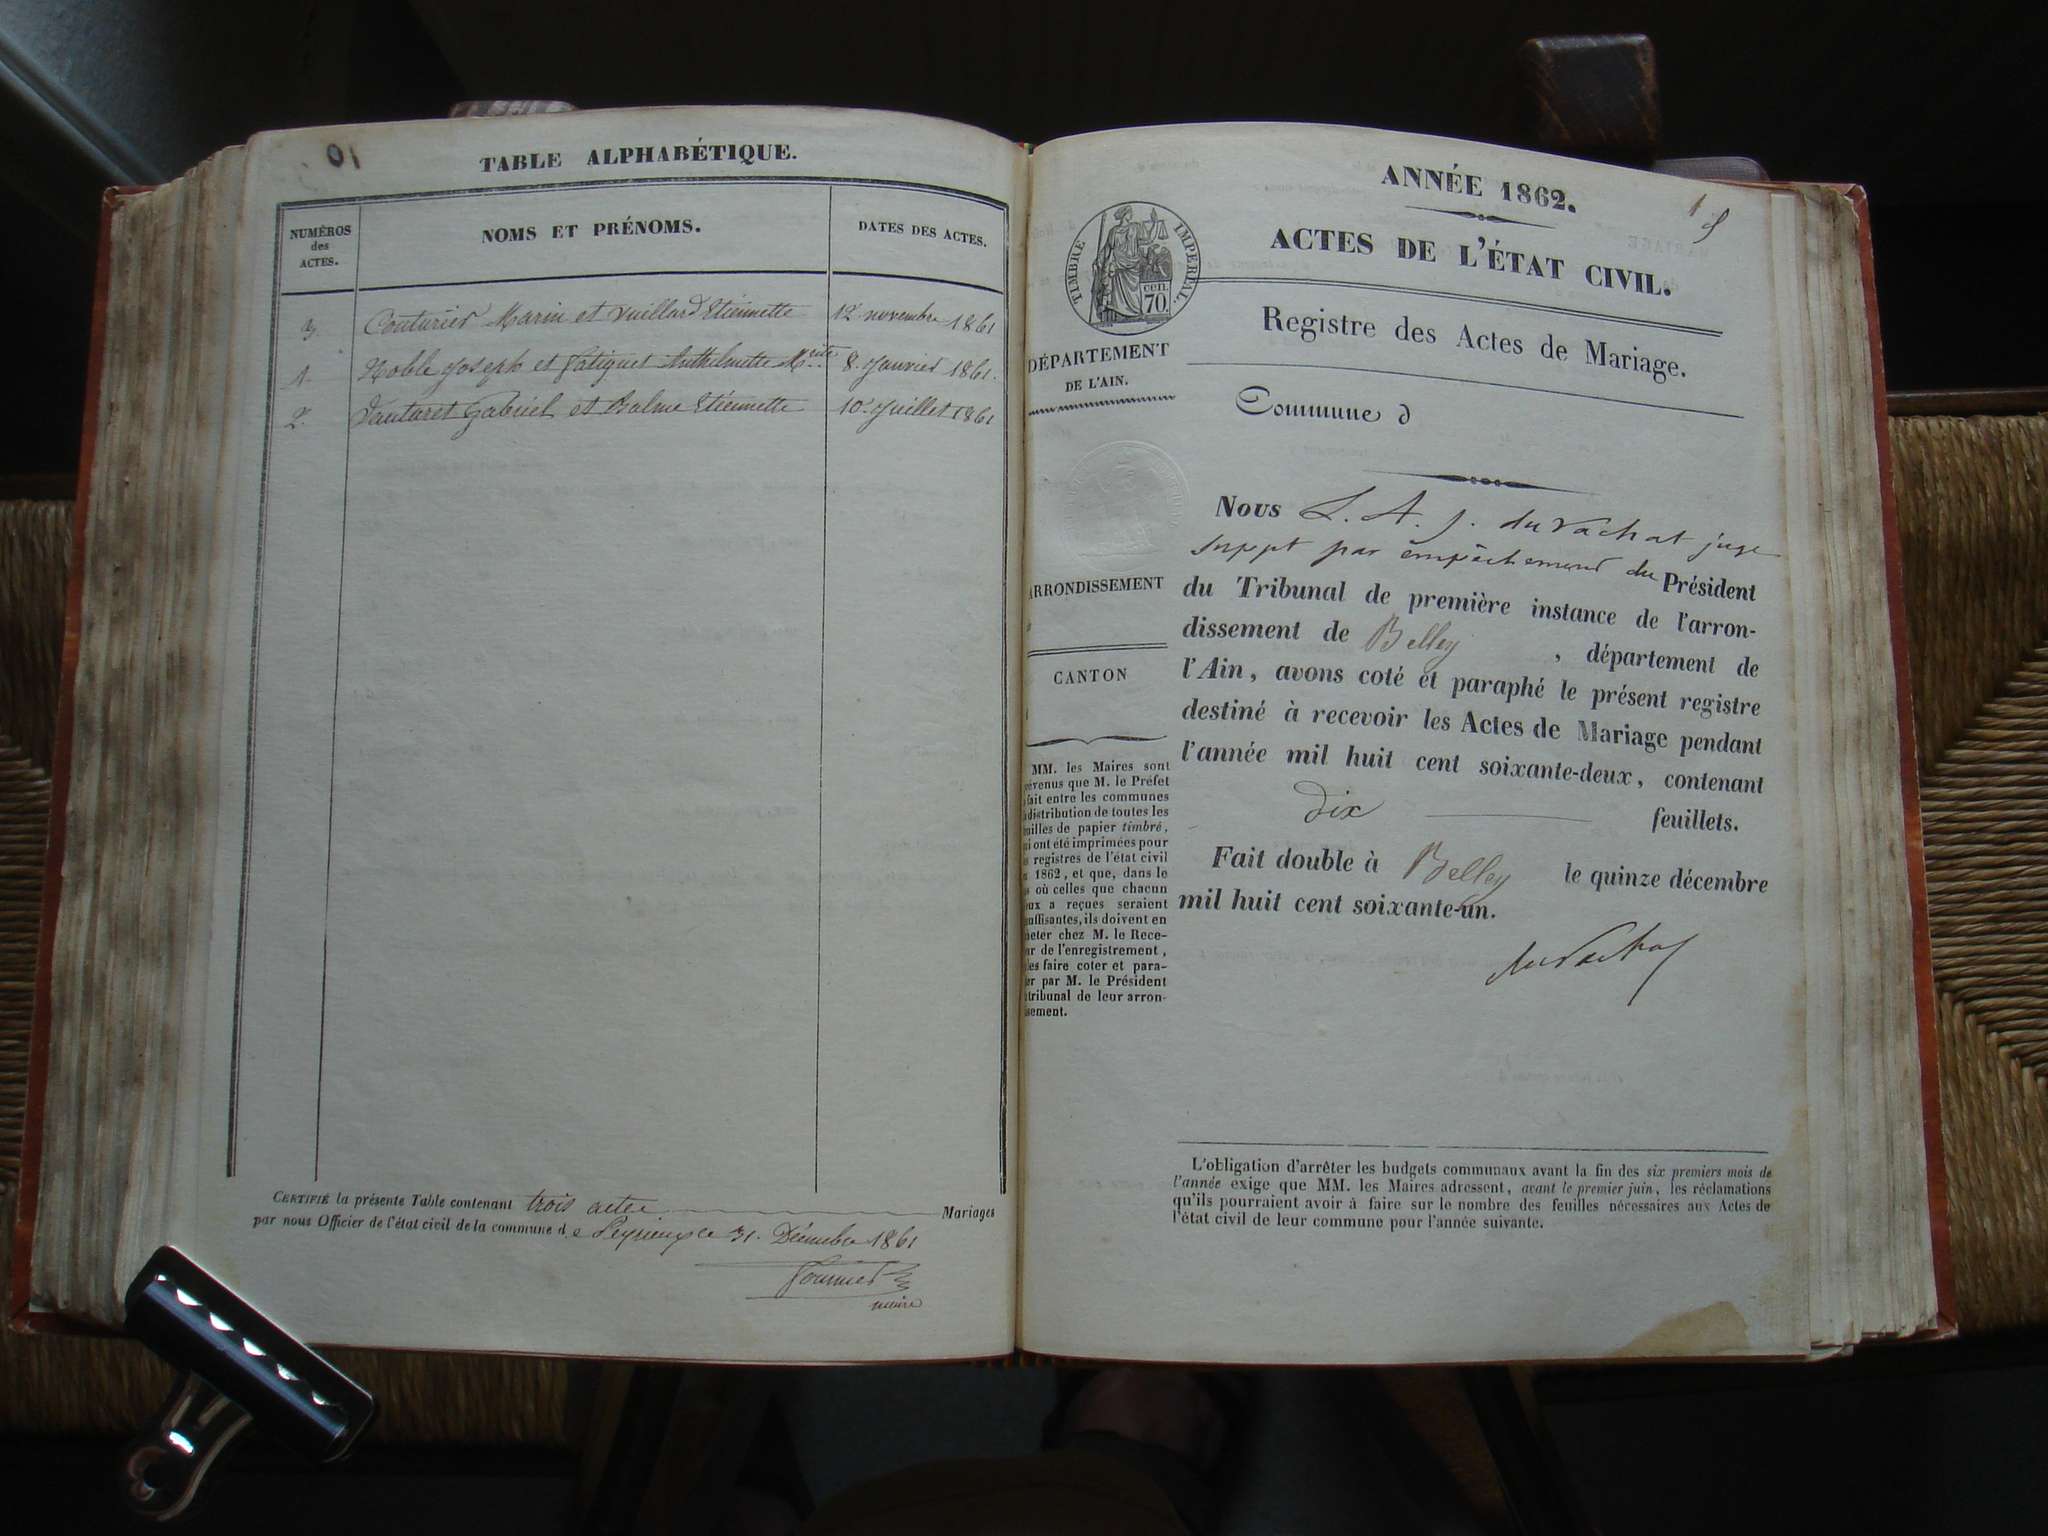 TABLE ALPHABÉTIQUE.
NUMÉROS des ACTES. NOMS ET PRÉNOMS. DATES DES ACTES.
3. Couturier Marin et Vuillard Etiennette 12 novembre 1861
1. Noble Joseph et Anthelmette 8. Janvier 1861.
2. Gabriel et Balme Etiennette 10. Juillet 1861
CERTIFIÉ la présente Table contenant trois actes Mariages
par nous Officier de l'état civil de la commune de Peyrieux ce 31. Décembre 1861
Fournier
maire
ANNÉE 1862.
ACTES DE L'ÉTAT CIVIL.
TIMBRE IMPERIAL.
CEN. 70.
Registre des Actes de Mariage.
DÉPARTEMENT
DE L'AIN.
Commune d
ARRONDISSEMENT
CANTON
MM. les Maires sont
prévenus que M. le Préfet
fait entre les communes
distribution de toutes les
feuilles de papier timbré,
qui ont été imprimées pour
les registres de l'état civil
1862, et que, dans le
cas où celles que chacun
d'eux a reçues seraient
insuffisantes, ils doivent en
acheter chez M. le Rece-
veur de l'enregistrement,
les faire coter et para-
pher par M. le Président
tribunal de leur arron-
dissement.
Nous L. A. J. du Vachat juge
suppt par empêchement du Président
du Tribunal de première instance de l'arron-
dissement de Belley, département de
l'Ain, avons coté et paraphé le présent registre
destiné à recevoir les Actes de Mariage pendant
l'année mil huit cent soixante-deux, contenant
dix feuillets.
Fait double à Belley le quinze décembre
mil huit cent soixante-un.
du Vachat
L'obligation d'arrêter les budgets communaux avant la fin des six premiers mois de
l'année exige que MM. les Maires adressent, avant le premier juin, les réclamations
qu'ils pourraient avoir à faire sur le nombre des feuilles nécessaires aux Actes de
l'état civil de leur commune pour l'année suivante.